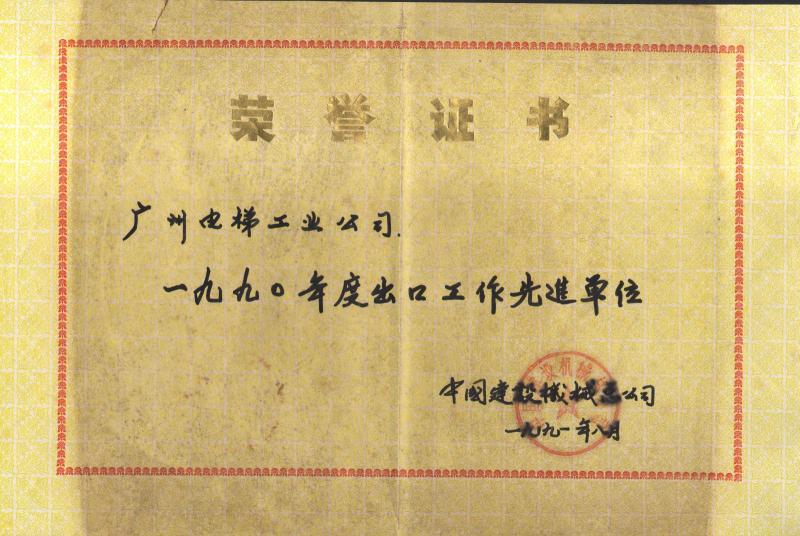 荣誉证书
广州电梯工业公司.
一九九〇年度出口工作先進单位
中國建設機械总公司
一九九一年八月